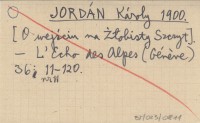 JORDÁN Károly 1900.
[O wejściu na Żłobisty Szczyt].
— L'Echo des Alpes (Genève)
36: 11-120.